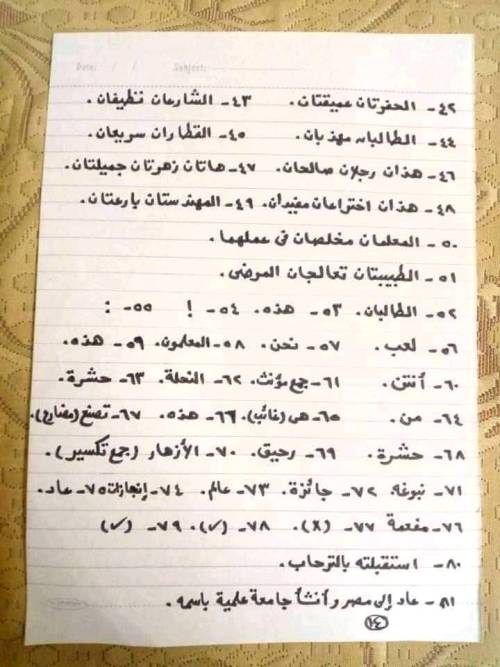 Date: / / Subject:
٤٢- الحفرتان عميقتان. ٤٣- الشارعان نظيفان.
٤٤- الطالبان مهذبان. ٤٥- القطاران سريعان.
٤٦- هذان رجلان صالحان. ٤٧- هاتان زهرتان جميلتان.
٤٨- هذان اختراعان مفيدان. ٤٩- المهندستان بارعتان.
٥٠- المعلمان مخلصان فى عملهما.
٥١- الطبيبتان تعالجان المرضى.
٥٢- الطالبان. ٥٣- هذه. ٥٤- ! ٥٥- :
٥٦- لعب. ٥٧- نحن. ٥٨- المعلمون. ٥٩- هذه.
٦٠- أنتن. ٦١- جمع مؤنث. ٦٢- النحلة. ٦٣- حشرة.
٦٤- من. ٦٥- هى (غائب). ٦٦- هذه. ٦٧- تصنع (مضارع).
٦٨- حشرة. ٦٩- رحيق. ٧٠- الأزهار (جمع تكسير).
٧١- نبوغه. ٧٢- جائزة. ٧٣- عالم. ٧٤- إنجازات ٧٥- عاد.
٧٦- مفعمة ٧٧- (x). ٧٨- (✓). ٧٩- (✓)
٨٠- استقبلته بالترحاب.
٨١- عاد إلى مصر وأنشأ جامعة علمية باسمه.
١٤